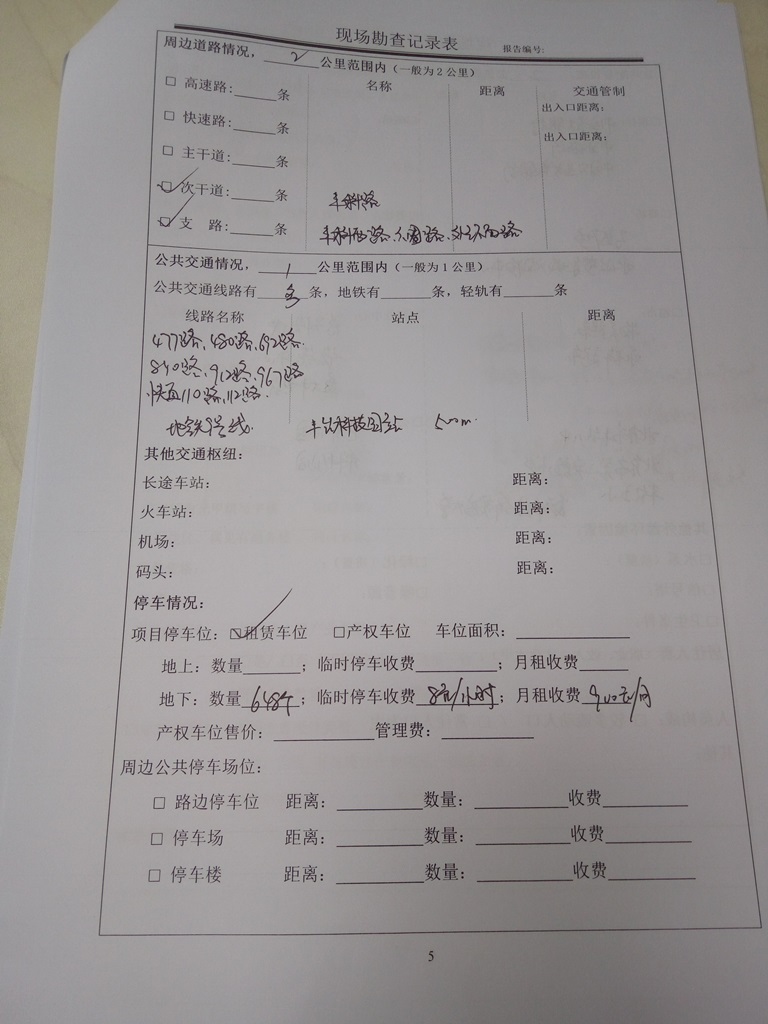 现场勘查记录表 报告编号:
周边道路情况，2公里范围内（一般为2公里）
名称 距离 交通管制
□ 高速路:______条 出入口距离:
□ 快速路:______条 出入口距离:
□ 主干道:______条
☑ 次干道:______条 丰科路
☑ 支 路:______条
公共交通情况，1公里范围内（一般为1公里）
公共交通线路有多条，地铁有______条，轻轨有______条
线路名称 站点 距离
477路、480路、692路
840路、912路、967路
快直110路、112路
地铁9号线 丰台科技园站 500m
其他交通枢纽：
长途车站： 距离：
火车站： 距离：
机场： 距离：
码头： 距离：
停车情况：
项目停车位：☑租赁车位 □产权车位 车位面积：____________
地上：数量______；临时停车收费________；月租收费_____
地下：数量648个；临时停车收费8元/小时；月租收费900元/月
产权车位售价：____________管理费：___________
周边公共停车场位：
□ 路边停车位 距离：_________数量：__________收费_________
□ 停车场 距离：_________数量：__________收费_________
□ 停车楼 距离：_________数量：__________收费_________
5